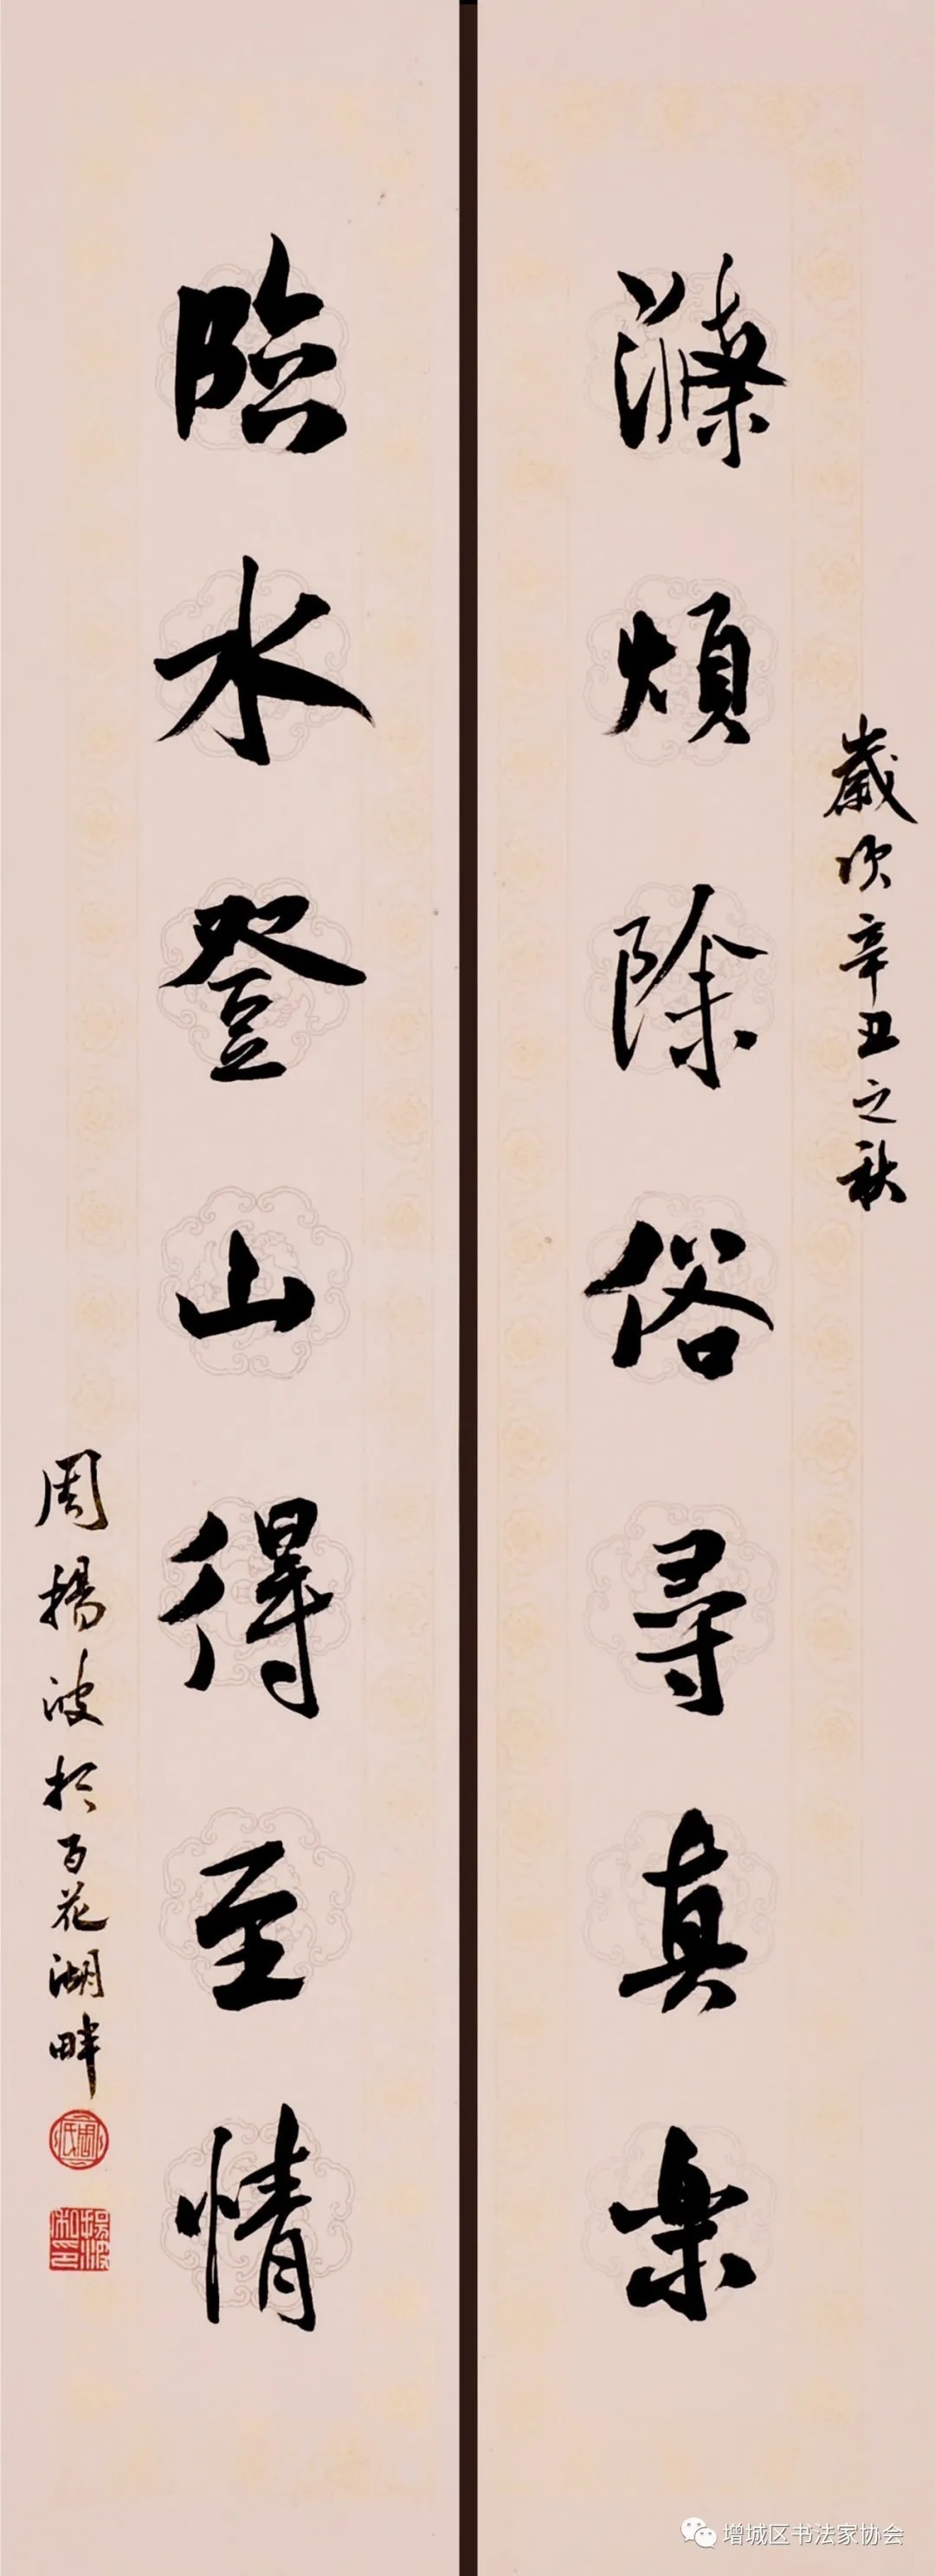 歲次辛丑之秋
滌煩除俗尋真樂
臨水登山得至情
周揚波於百花湖畔
增城区书法家协会